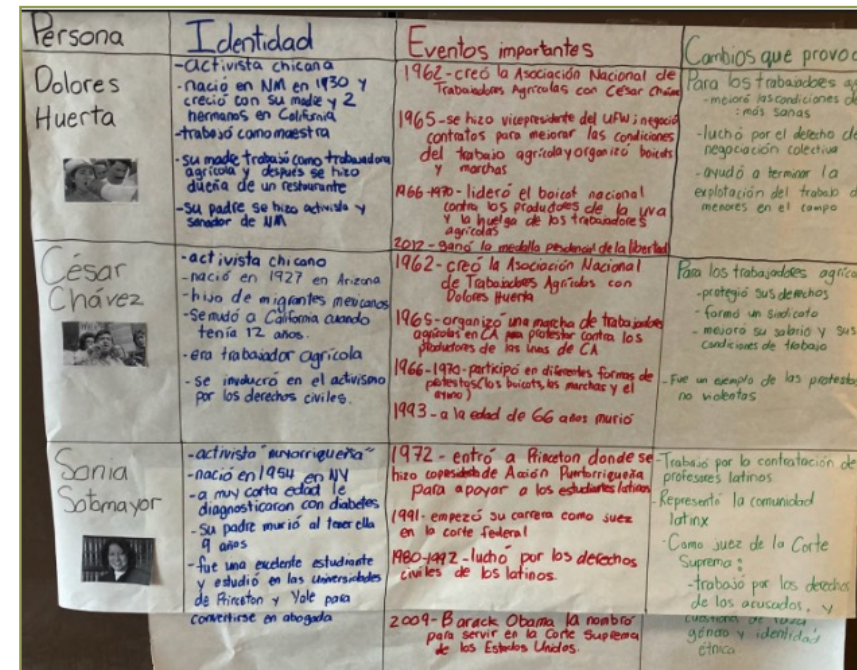 Persona
Identidad
Eventos importantes
Cambios que provoc
Dolores
Huerta
-activista chicana
-nació en NM en 1930 y
creció con su madre y 2
hermanos en California
-trabajó como maestra
-su madre trabajó como trabajadora
agrícola y después se hizo
dueña de un restaurante
-su padre se hizo activista y
senador de NM
1962-creó la Asociación Nacional de
Trabajadores Agrícolas con César Chávez
1965-se hizo vicepresidente del UFW; negoció
contratos para mejorar las condiciones
del trabajo agrícola y organizó boicots
y marchas
1966-1970-lideró el boicot nacional
contra los productores de la uva
y la huelga de los trabajadores
agrícolas
2012-ganó la medalla presidencial de la libertad
Para los trabajadores ag
-mejoró las condiciones de
: más sanas
-luchó por el derecho de
negociación colectiva
-ayudó a terminar la
explotación del trabajo d
menores en el campo
César
Chávez
-activista chicano
-nació en 1927 en Arizona
-hijo de migrantes mexicanos
-se mudó a California cuando
tenía 12 años.
-era trabajador agrícola
-se involucró en el activismo
por los derechos civiles.
1962-creó la Asociación Nacional
de Trabajadores Agrícolas con
Dolores Huerta
1965-organizó una marcha de trabajadores
agrícolas en CA para protestar contra los
productores de las uvas de CA
1966-1970-participó en diferentes formas de
protestas (los boicots, las marchas y el
ayuno)
1993-a la edad de 66 años murió
Para los trabajadores agríco
-protegió sus derechos
-formó un sindicato
-mejoró su salario y sus
condiciones de trabajo
-Fue un ejemplo de las protestas
no violentas
Sonia
Sotomayor
-activista "nuyorriqueña"
-nació en 1954 en NY
-a muy corta edad le
diagnosticaron con diabetes
-su padre murió al tener ella
9 años
-fue una excelente estudiante
y estudió en las universidades
de Princeton y Yale para
convertirse en abogada
1972-entró a Princeton donde se
hizo copresidente de Acción Puertorriqueña
para apoyar a los estudiantes latinos
1991-empezó su carrera como juez
en la corte federal
1980-1992-luchó por los derechos
civiles de los latinos.
2009-Barack Obama la nombró
para servir en la Corte Suprema
de los Estados Unidos.
-Trabajó por la contratación de
profesores latinos
-Representó la comunidad
latinx
-Como juez de la Corte
Suprema:
-trabajó por los derechos
de los acusados, y
cuestiona de raza
género y identidad
étnica